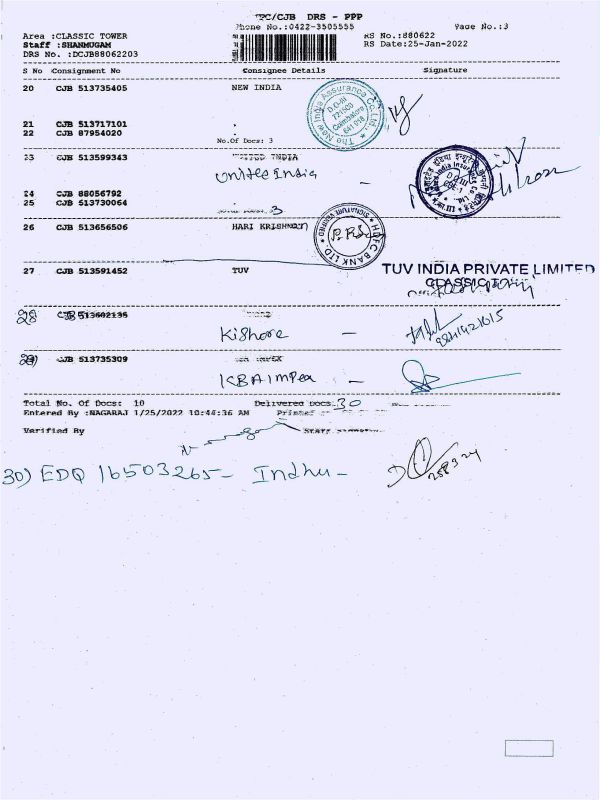 TPC/CJB DRS - PPP
Phone No.:0422-3505555
Page No.:3
Area :CLASSIC TOWER
RS No.:880622
Staff :SHANMUGAM
RS Date:25-Jan-2022
DRS No. :DCJB88062203
S No Consignment No Consignee Details Signature
20 CJB 513735405 NEW INDIA
The New India Assurance Co. Ltd.
D.O-III
721500
Coimbatore
641 018
21 CJB 513717101
22 CJB 87954020
No.Of Docs: 3
23 CJB 513599343 UNITED INDIA
United India -
24 CJB 88056792
25 CJB 513730064
3
26 CJB 513656506 HARI KRISHNAN
HDFC BANK LTD
SIGNATURE VERIFIED
27 CJB 513591452 TUV
TUV INDIA PRIVATE LIMITED
28 CJB 513602135
Kishore -
29) CJB 513735309
KBA Impex -
Total No. Of Docs: 10 Delivered Docs 30
Entered By :NAGARAJ 1/25/2022 10:44:36 AM Printed
Verified By
30) EDQ 16503265- Indhu-